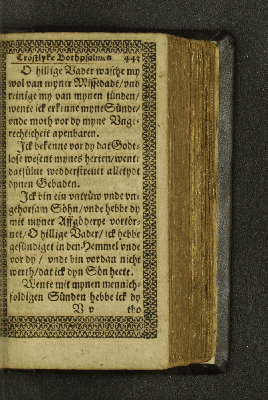 Tröstlyke Bothpsalmen 443
O hillige Vader wasche my
wol van myner Missedade / vnd
reinige my van mynen sünden /
wente ick erkenne myne Sünde /
vnde moth vor dy myne Vnge-
rechticheit apenbaren.
Ick bekenne vor dy dat Godt-
lose wesent mynes herten / wente
datsülue wedderstreuet alletydt
dynen Gebaden.
Ick bin ein vntrüw vnde vn-
gehorsam Söhn / vnde hebbe dy
mit myner Affgöderye vortör-
net / O hillige Vader / ick hebbe
gesündiget in den Hemmel vnde
vor dy / vnde bin vordan nicht
werth / dat ick dyn Sön hete.
Wente mit mynen mennich-
foldigen Sünden hebbe ick dy
V v tho